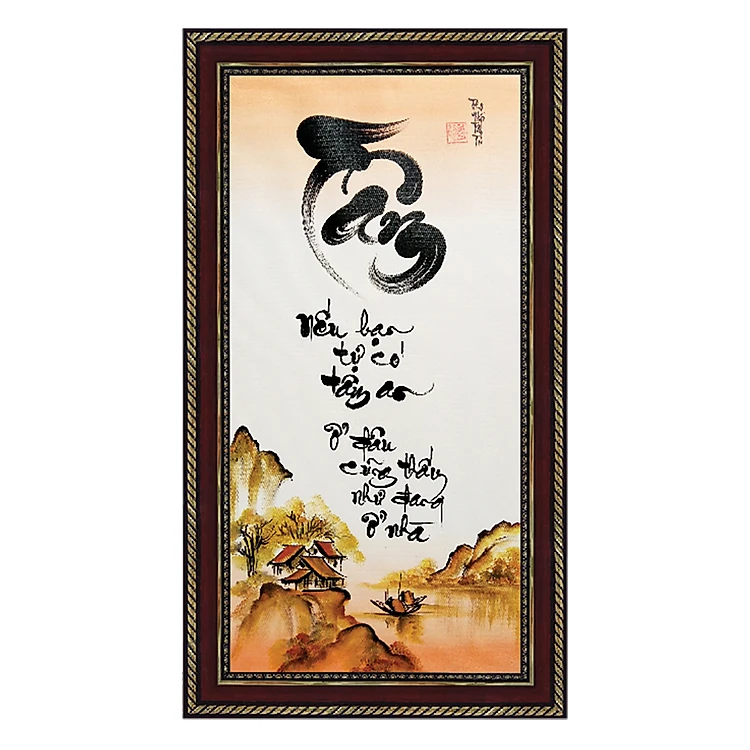 Tâm
Nếu bạn
tự có
tâm an
Ở đâu
cũng thấy
như đang
ở nhà